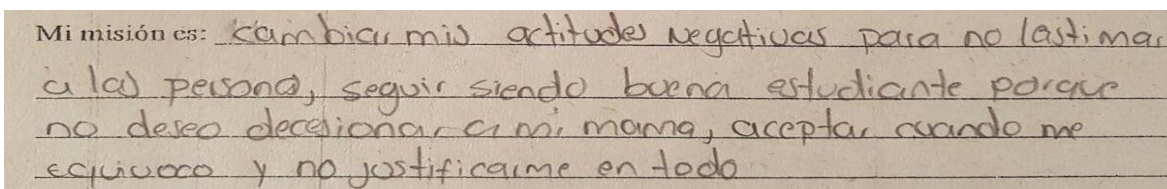 Mi misión es: cambiar mis actitudes negativas para no lastimar
a las persona, seguir siendo buena estudiante porque
no deseo decesionar a mi mama, aceptar cuando me
equivoco y no justificarme en todo